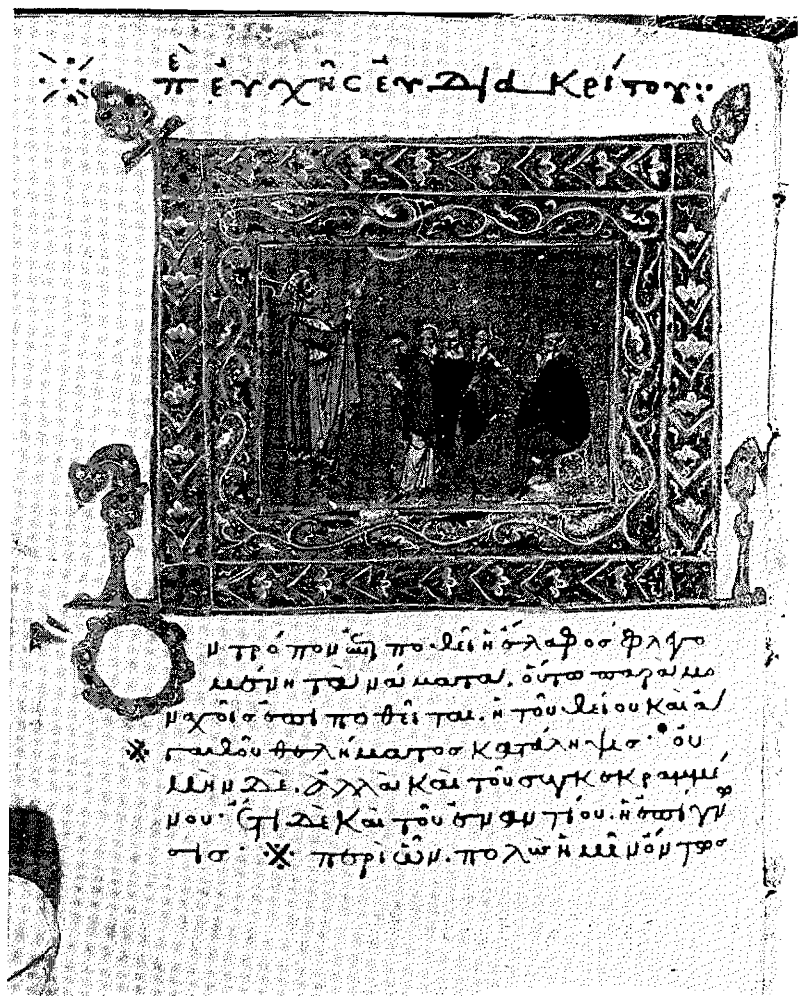 εὐχῆς εὐδιακρίτου:
Ὃν τρόπον ἐπιποθεῖ ἡ ἔλαφος φλεγο
μένη τὰ νάματα. οὕτω παρὰ μο
ναχοῖς ἐπιποθεῖται. ἡ τοῦ θείου καὶ ἀ
γαθοῦ θελήματος κατάληψις· οὐ
μὴν δὲ. ἀλλὰ καὶ τοῦ συγκεκραμμέ
νου· ἔτι δὲ καὶ τοῦ ἐναντίου. ἡ ἐπίγνω
σις· περὶ ὧν.